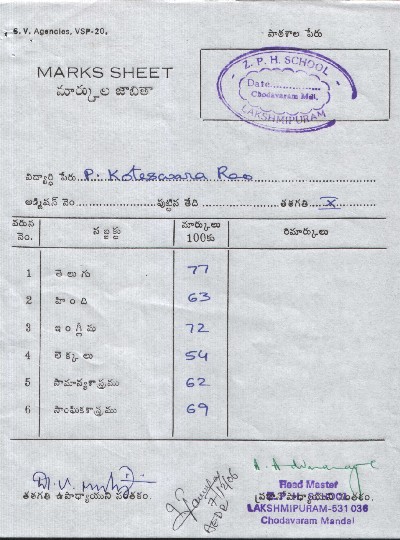 S. V. Agencies, VSP-20.
పాఠశాల పేరు
MARKS SHEET
మార్కుల జాబితా
Z. P. H. SCHOOL
Date
Chodavaram Mdl.
LAKSHMIPURAM
విద్యార్థి పేరు P. Koteswara Rao
అడ్మిషన్ నెం. పుట్టిన తేది తరగతి X
వరుస నెం. సబ్జెక్టు మార్కులు 100కు రిమార్కులు
1 తెలుగు 77
2 హింది 63
3 ఇంగ్లీషు 72
4 లెక్కలు 54
5 సామాన్యశాస్త్రము 62
6 సాంఘికశాస్త్రము 69
తరగతి ఉపాధ్యాయుని సంతకం.
7/7/06
Head Master
Z. P. H. SCHOOL
LAKSHMIPURAM-531 036
Chodavaram Mandal